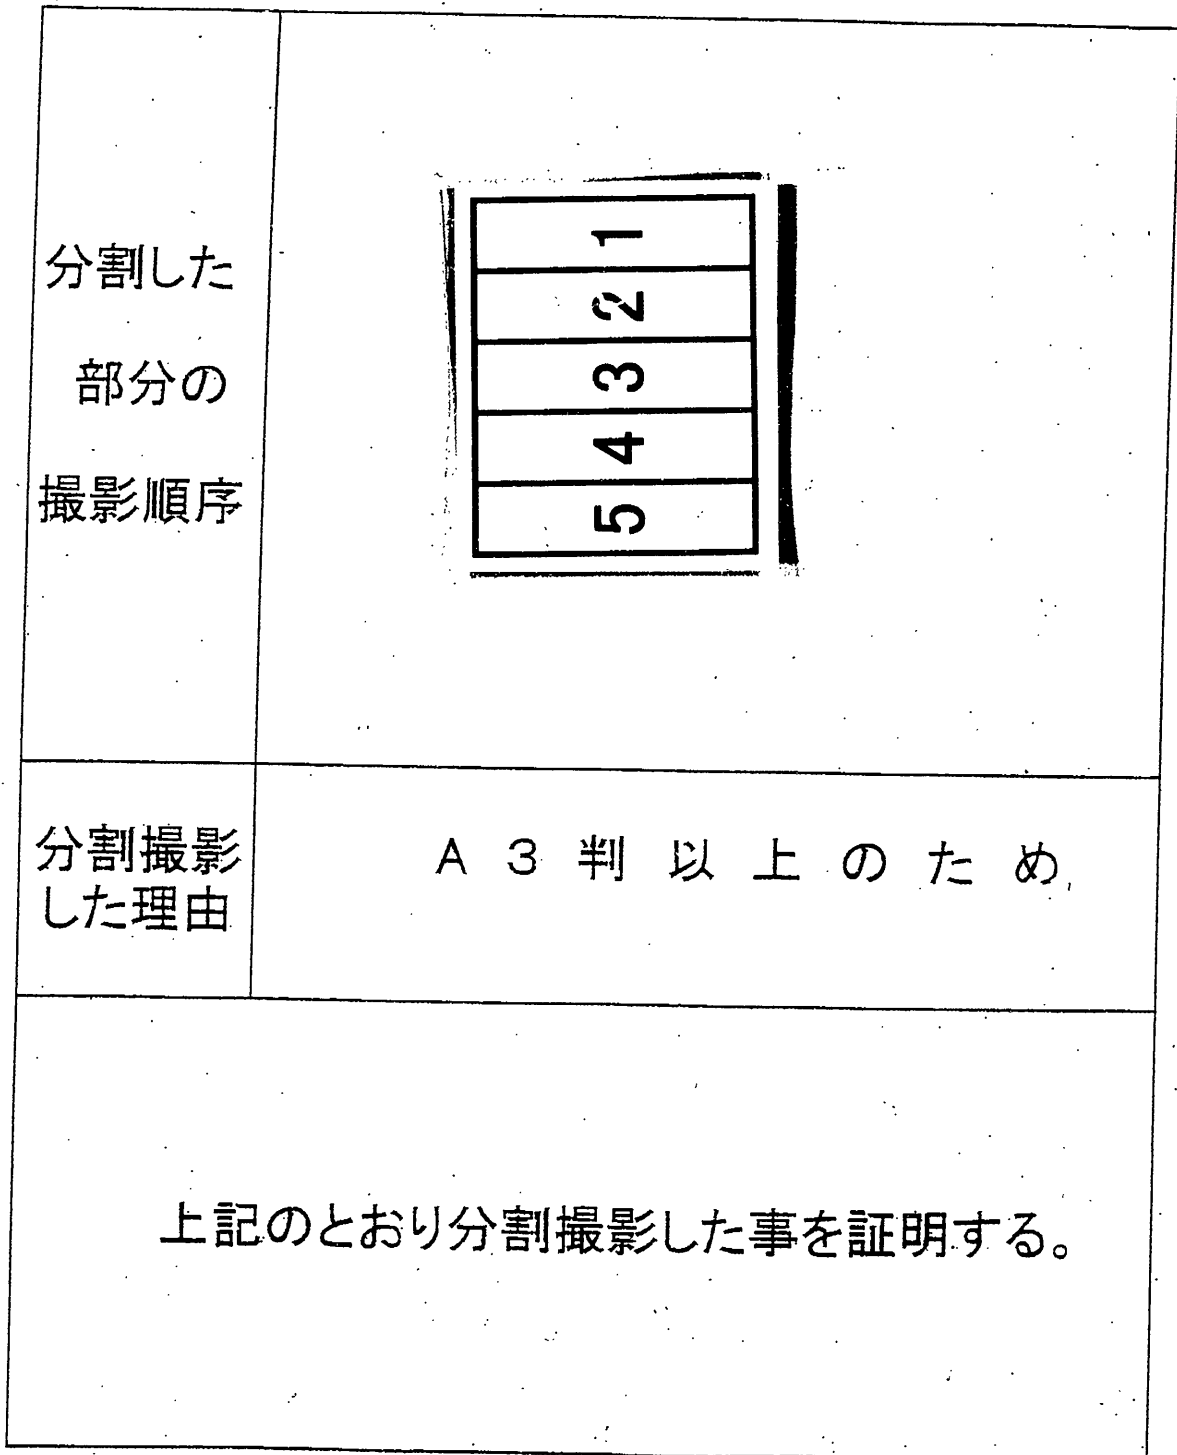 分割した
部分の
撮影順序
1
2
3
4
5
分割撮影
した理由
A3判以上のため
上記のとおり分割撮影した事を証明する。